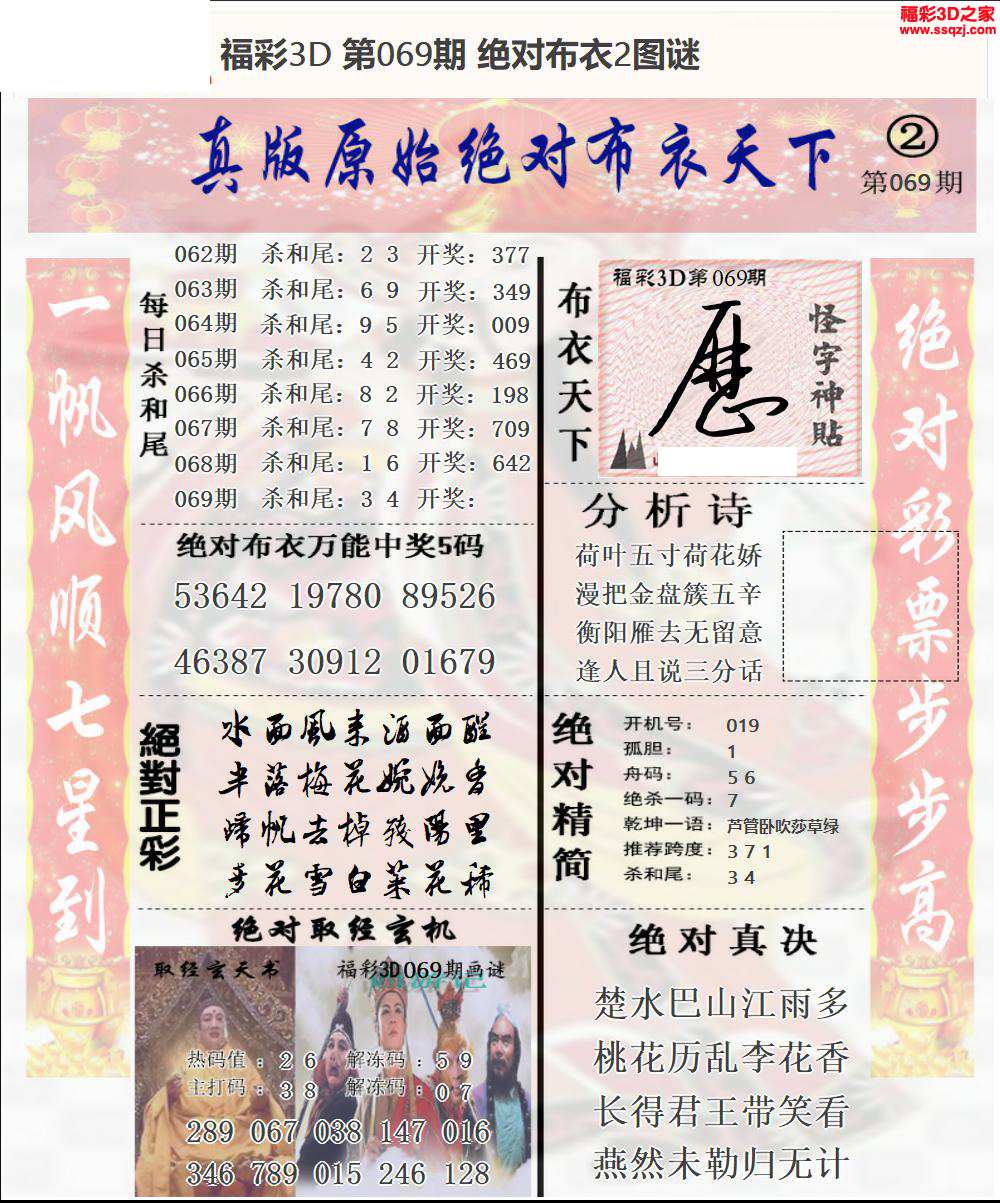 福彩3D之家
www.ssqzj.com
福彩3D 第069期 绝对布衣2图谜
真版原始绝对布衣天下
②
第069期
一帆风顺七星到
每日杀和尾
062期 杀和尾：2 3 开奖：377
063期 杀和尾：6 9 开奖：349
064期 杀和尾：9 5 开奖：009
065期 杀和尾：4 2 开奖：469
066期 杀和尾：8 2 开奖：198
067期 杀和尾：7 8 开奖：709
068期 杀和尾：1 6 开奖：642
069期 杀和尾：3 4 开奖：
绝对布衣万能中奖5码
53642 19780 89526
46387 30912 01679
絕對正彩
水面風来酒面醒
半落梅花婉娩香
归帆去棹残陽里
荞花雪白菜花稀
绝对取经玄机
取经玄天书
福彩3D069期画谜
热码值：2 6 解冻码：5 9
主打码：3 8 解冻码：0 7
289 067 038 147 016
346 789 015 246 128
布衣天下
福彩3D第069期
怪字神贴
分析诗
荷叶五寸荷花娇
漫把金盘簇五辛
衡阳雁去无留意
逢人且说三分话
绝对精简
开机号：019
孤胆：1
舟码：5 6
绝杀一码：7
乾坤一语：芦管卧吹莎草绿
推荐跨度：3 7 1
杀和尾：3 4
绝对真决
楚水巴山江雨多
桃花历乱李花香
长得君王带笑看
燕然未勒归无计
绝对彩票步步高